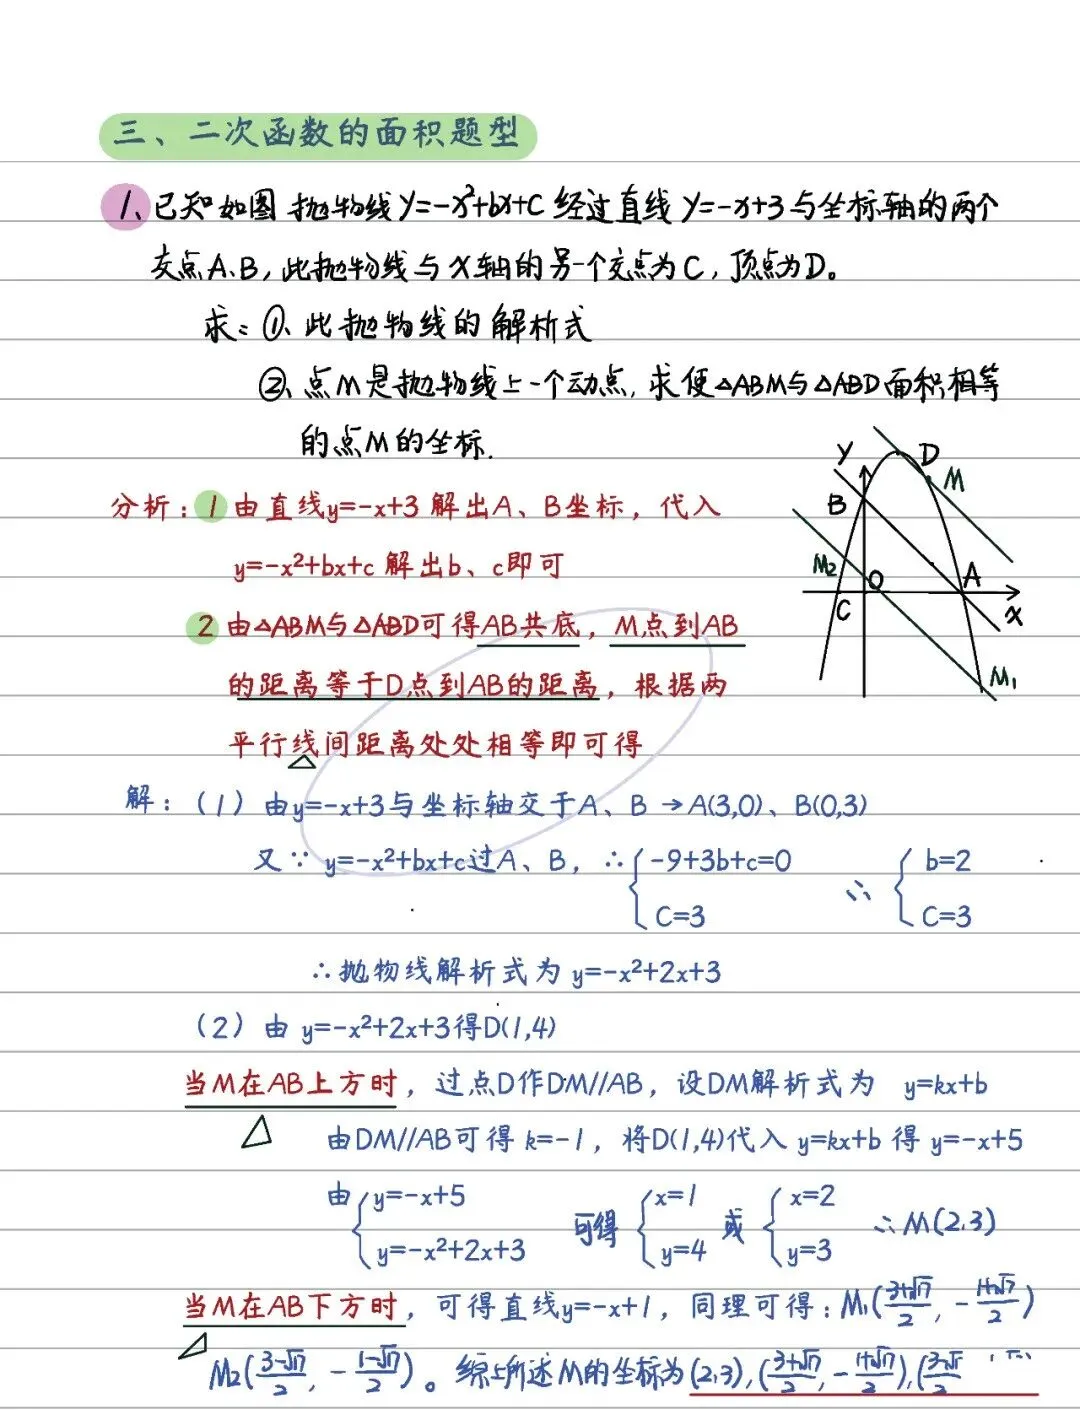 三、二次函数的面积题型
1、已知如图 抛物线y=-x²+bx+C 经过直线 y=-x+3 与坐标轴的两个
交点A、B, 此抛物线与X轴的另一个交点为C, 顶点为D。
求: ①、此抛物线的解析式
②、点M是抛物线上一个动点, 求使△ABM与△ABD面积相等
的点M的坐标.
分析: 1 由直线y=-x+3 解出A、B坐标, 代入
y=-x²+bx+c 解出b、c即可
2 由△ABM与△ABD可得AB共底, M点到AB
的距离等于D点到AB的距离, 根据两
平行线间距离处处相等即可得
Y
D
M
B
M₂
O
A
C
X
M₁
解: (1) 由y=-x+3与坐标轴交于A、B → A(3,0)、B(0,3)
又∵ y=-x²+bx+c过A、B, ∴ { -9+3b+c=0 ∴ { b=2
C=3 C=3
∴抛物线解析式为 y=-x²+2x+3
(2) 由 y=-x²+2x+3得D(1,4)
当M在AB上方时, 过点D作DM//AB, 设DM解析式为 y=kx+b
由DM//AB可得 k=-1, 将D(1,4)代入 y=kx+b 得 y=-x+5
由 { y=-x+5 可得 { x=1 或 { x=2 ∴M(2,3)
y=-x²+2x+3 y=4 y=3
当M在AB下方时, 可得直线y=-x+1, 同理可得: M₁((3+√17)/2, -(1+√17)/2)
M₂((3-√17)/2, -(1-√17)/2)。综上所述M的坐标为(2,3),((3+√17)/2, -(1+√17)/2),(